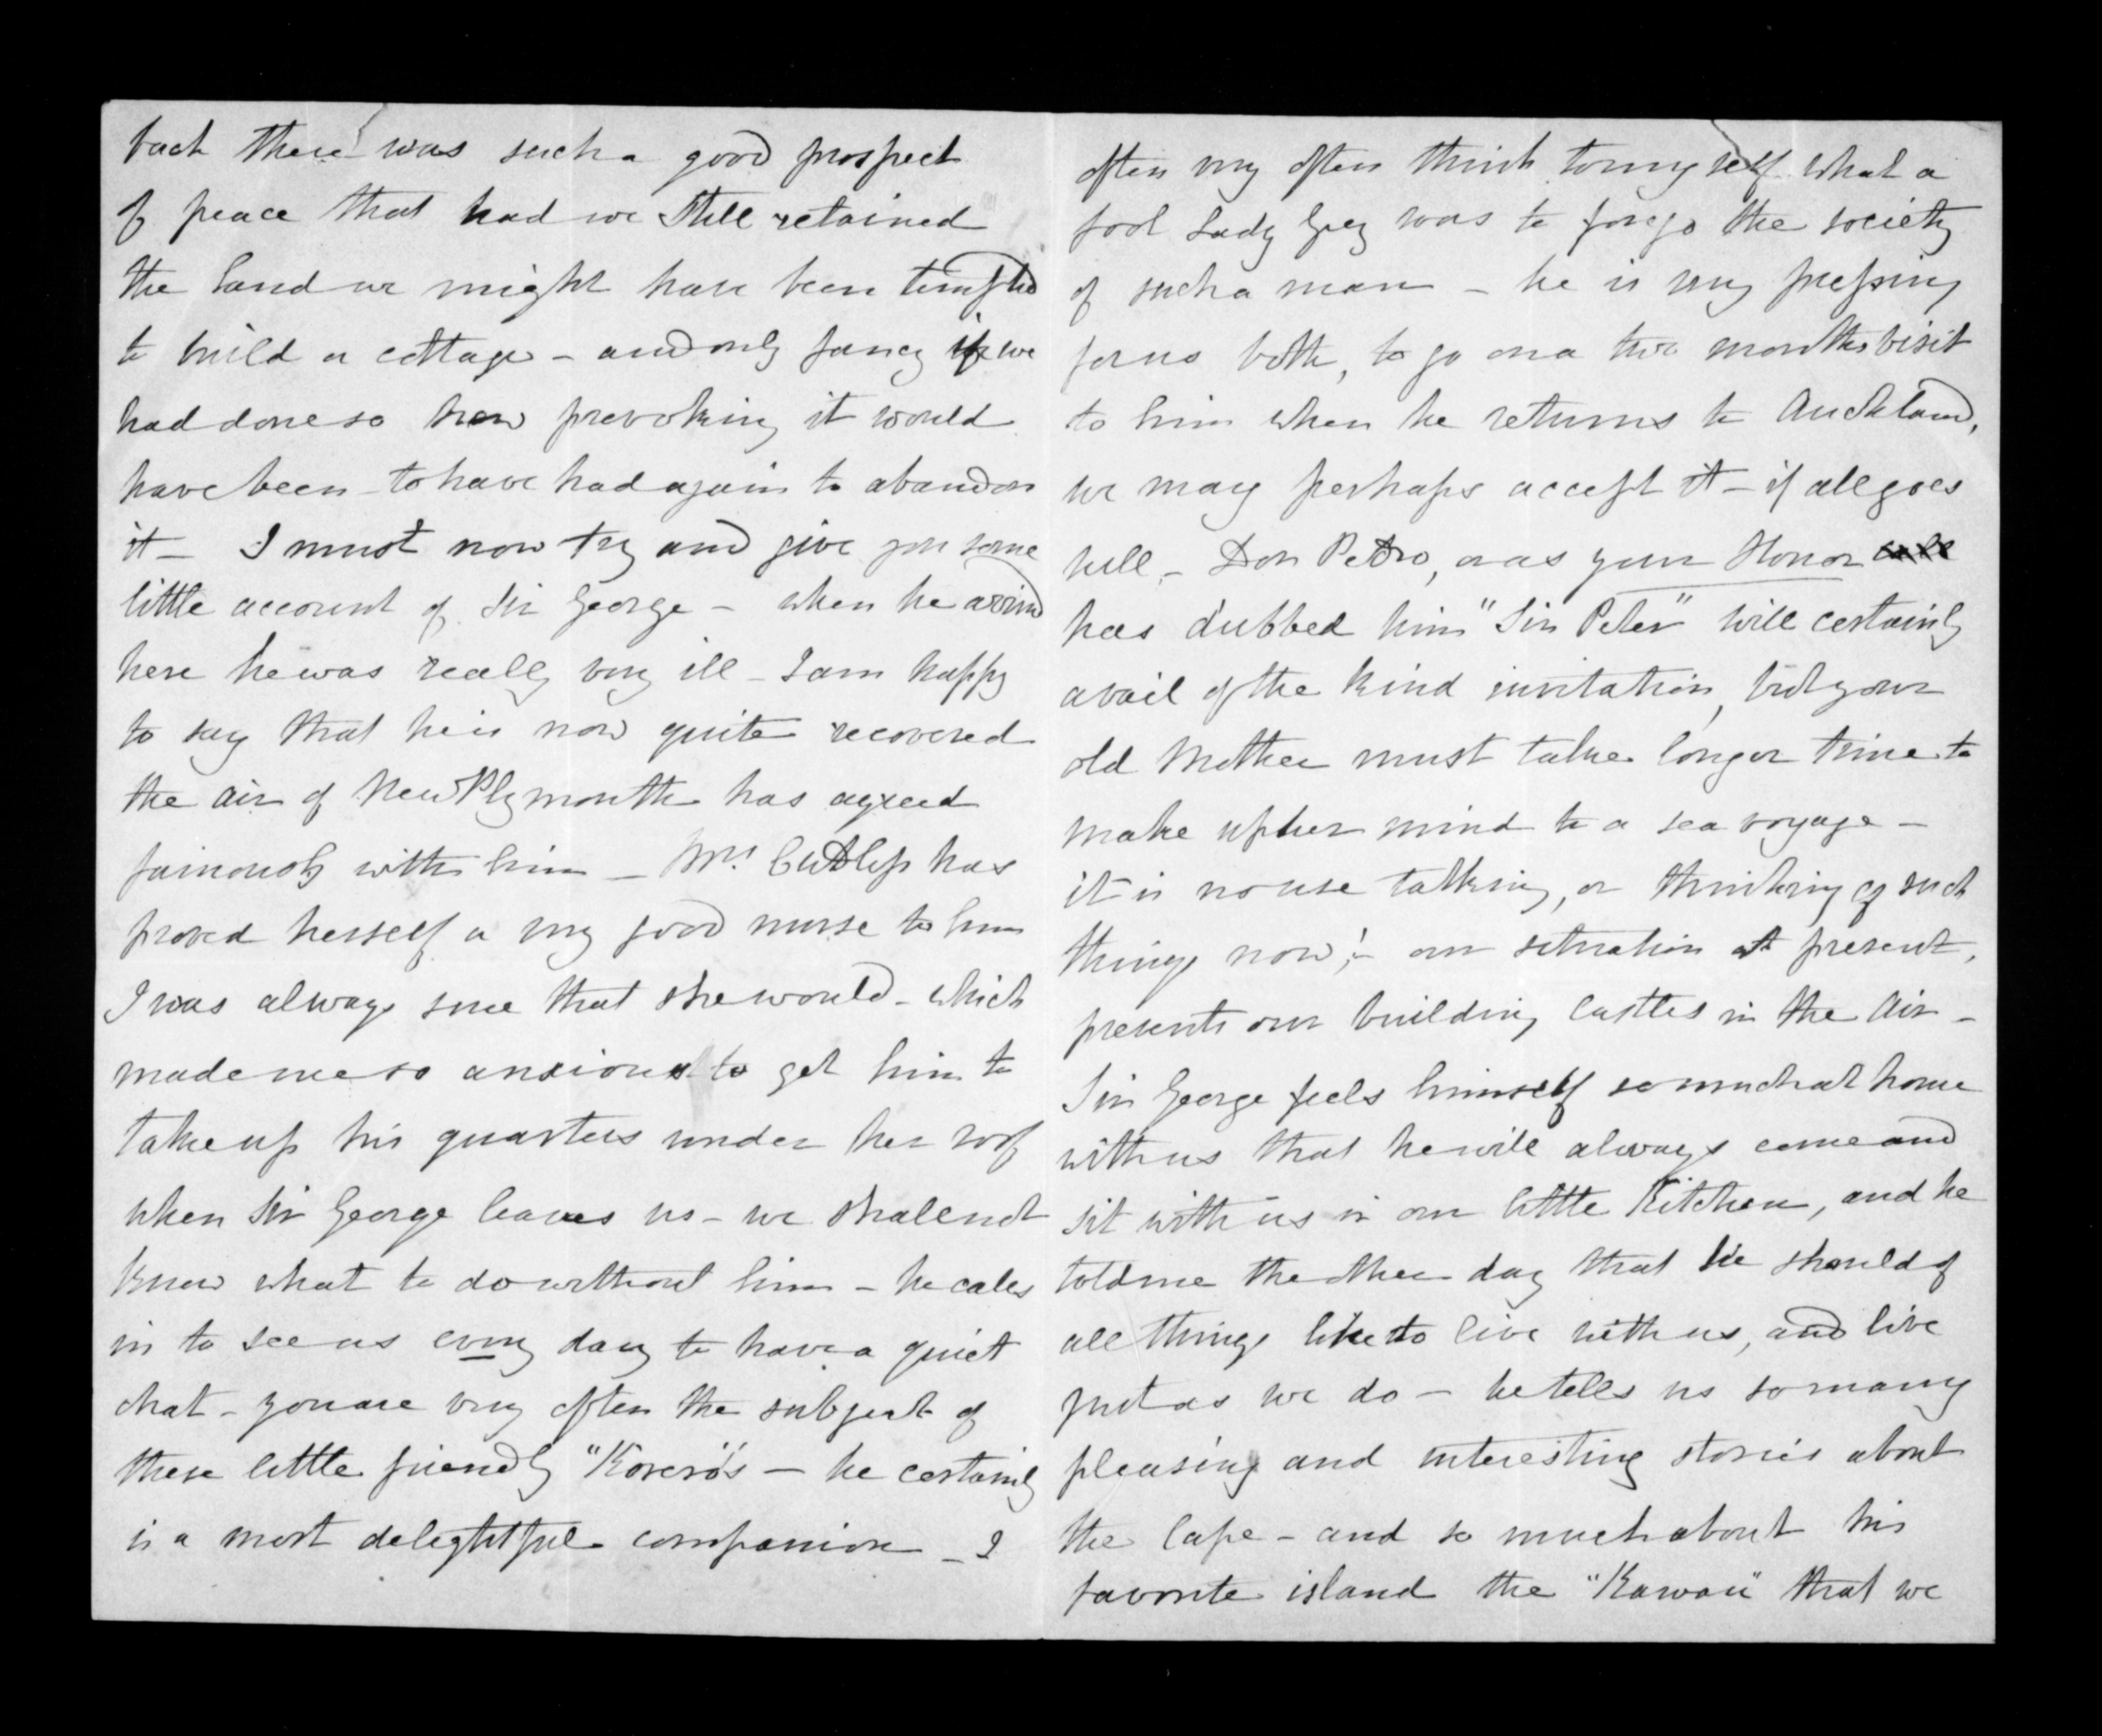 back there was such a good prospect
of peace that had we still retained
the land we might have been tempted
to build a cottage – and only fancy if we
had done so how provoking it would
have been to have had again to abandon
it – I must now try and give you some
little account of Sir George – when he arrived
here he was really very ill – I am happy
to say that he is now quite recovered
the air of New Plymouth has agreed
famously with him – Mrs. Cutless has
proved herself a very good nurse to him
I was always sure that she would – which
made me so anxious to get him to
take up his quarters under her roof
when Sir George leaves us – we shall not
know what to do without him – he calls
in to see us every day to have a quiet
chat – you are very often the subject of
these little friendly "Korero's – he certainly
is a most delightful companion – I
often very often think to myself what a
fool Lady Grey was to forego the society
of such a man – he is very pressing
for us both, to go on a two months visit
to him when he returns to Auckland,
we may perhaps accept it – if all goes
well – Don Pedro, or as your Honor
has dubbed him "Sir Peter" will certainly
avail of the kind invitation, but your
old Mother must take longer time to
make up her mind to a sea voyage –
it is no use talking, or thinking of such
things now! – our situation at present,
prevents our building castles in the Air –
Sir George feels himself so much at home
with us that he will always come and
sit with us in our little Kitchen, and he
told me the other day that he should of
all things like to live with us, and live
just as we do – he tells us so many
pleasing and interesting stories about
the Cape – and so much about his
favorite island the "Kawau" that we